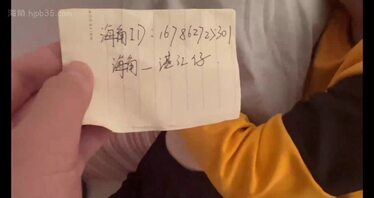 海角 hjpb35.com
海角ID：1678627230
海角_湛江仔